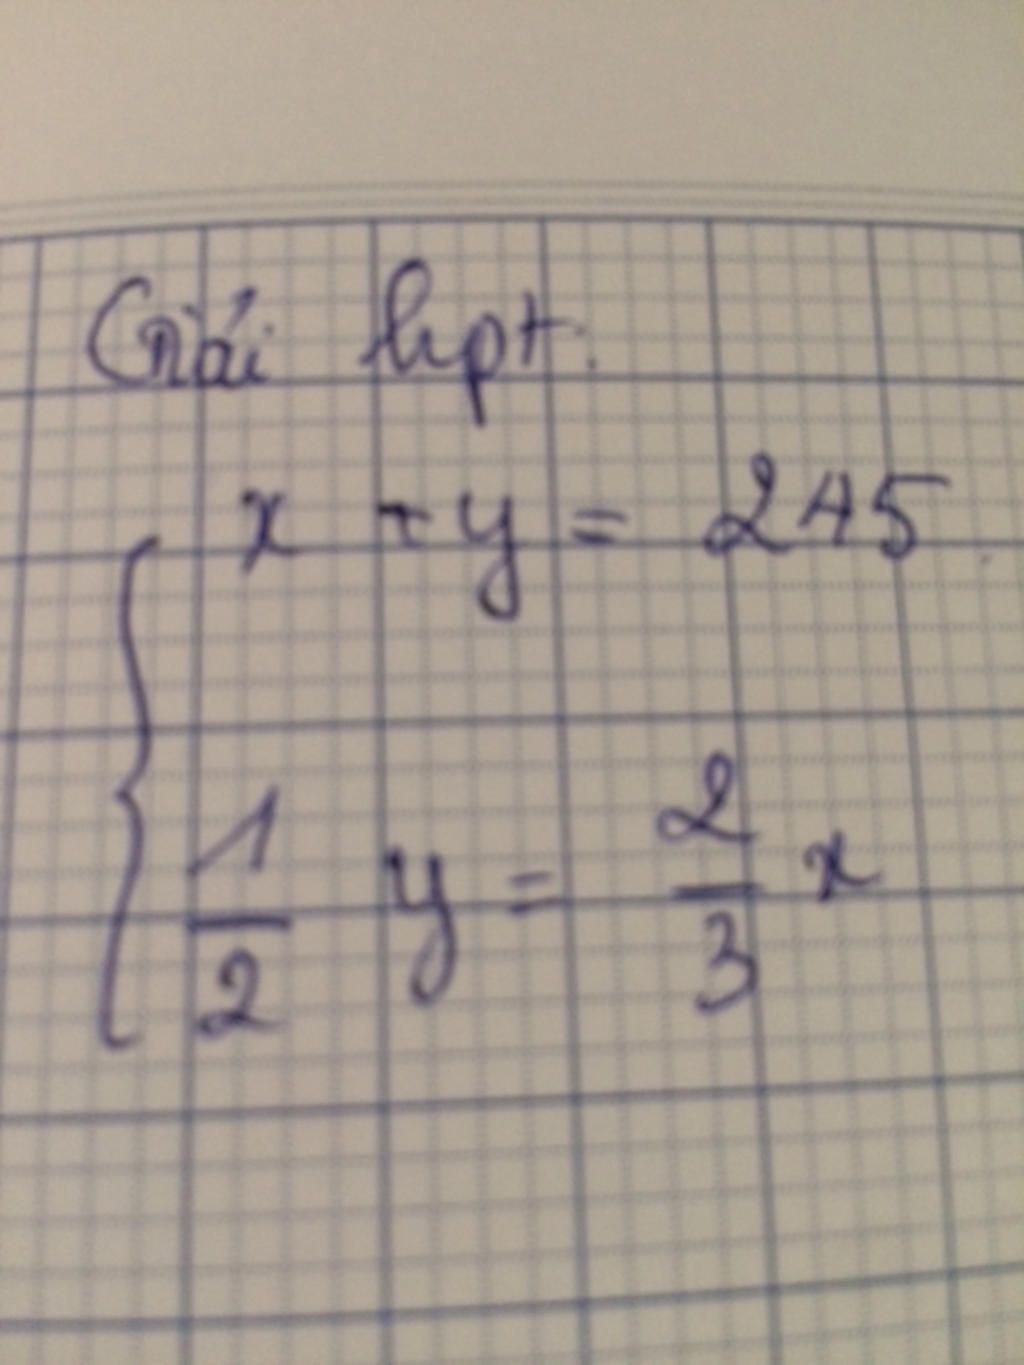 Giải hpt:
x + y = 245
1/2 y = 2/3 x